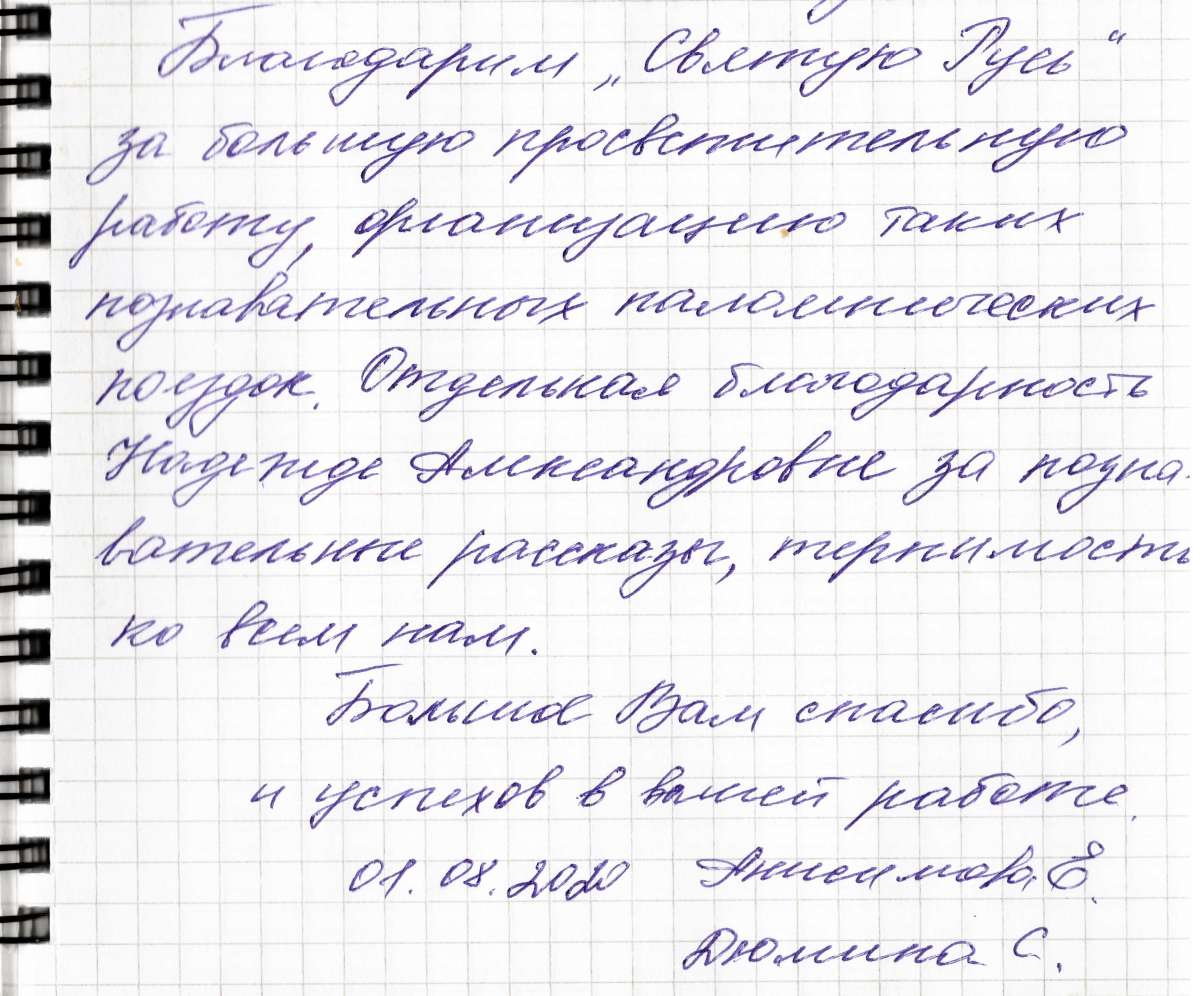 Благодарим „Святую Русь“
за большую просветительную
работу, организацию таких
познавательных паломнических
поездок. Отдельная благодарность
Надежде Александровне за позна-
вательные рассказы, терпимость
ко всем нам.
Большое Вам спасибо,
и успехов в вашей работе.
01.08.2020 Анисимова Е.
Дюмина С.